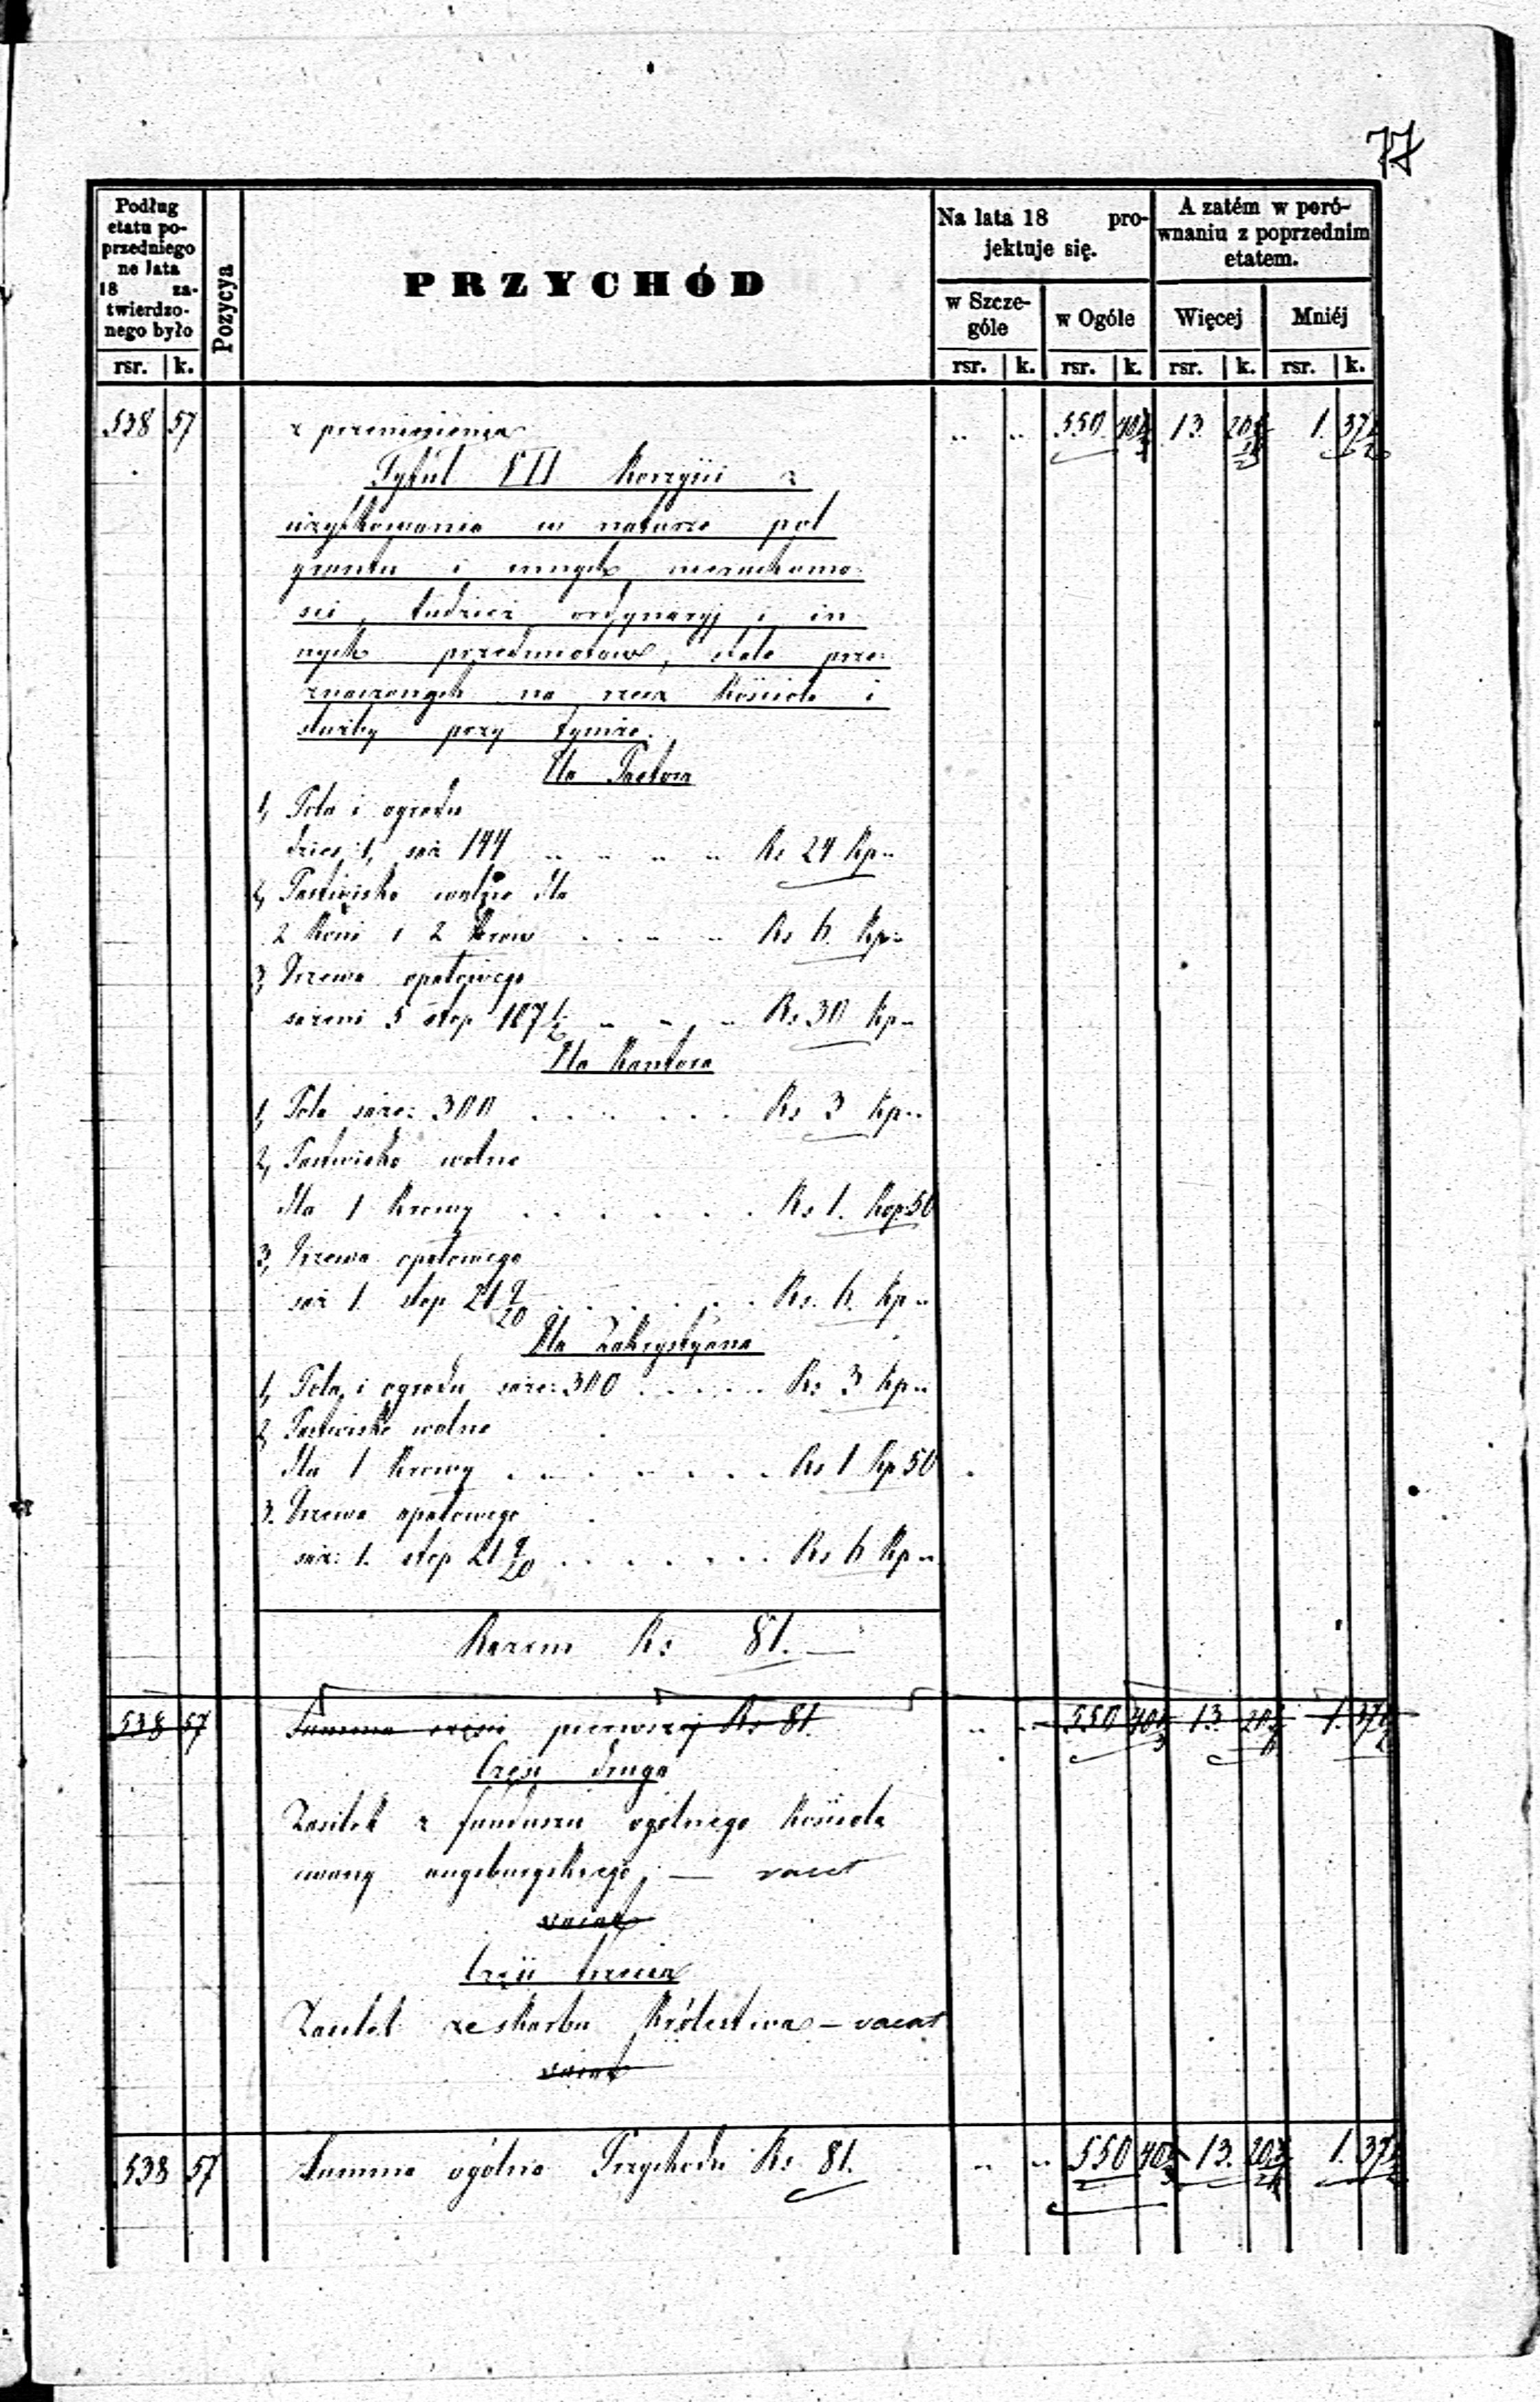 77
Podług etatu poprzedniego ne lata 18 zatwierdzonego było
Pozycya
PRZYCHÓD
Na lata 18 projektuje się.
A zatém w porównaniu z poprzednim etatem.
w Szczególe
w Ogóle
Więcej
Mniéj
rsr. k. rsr. k. rsr. k. rsr. k. rsr. k.
538 57 z przeniesienia 550 13 1.
Tytuł VII Korzyści z
użytkowania w naturze pól
gruntu i innych nieruchomo
ści, tudzież ordynaryj i in
nych przedmiotów, stale prze
znaczonych na rzecz Kościoła i
służby przy tymże.
Dla Pastora
1, Pola i ogrodu
dzies: 1, saż 144 Rs 24 Kp
2, Pastwisko wolne dla
2 Koni i 2 Krów Rs 6. Kp
3, Drzewa opałowego
sążeni 5 stop 107 1/2 Rs 30 Kp
Dla Kantora
1, Pola sąże: 300 Rs 3 Kp
2, Pastwisko wolne
dla 1 Krowy Rs 1. Kop 50
3, Drzewa opałowego
saż 1. stop 21 9/20 Rs. 6. Kp
Dla Zakrystyana
1, Pola i ogrodu sąże: 300 Rs 3 Kp
2, Pastwisko wolne
dla 1 Krowy Rs 1 Kp 50
3. Drzewa opałowego
saż: 1. stop 21 9/20 Rs 6 Kp
Razem Rs 81.—
538 57 Summa części pierwszej Rs 81. 550 13 1.
Część druga
Zasiłek z funduszu ogólnego Kościoła
ewang augsburgskiego, — vacat
vacat
Część trzecia
Zasiłek ze skarbu Królestwa — vacat
vacat
538 57 Summa ogólna Przychodu Rs 81. 550 13. 1.